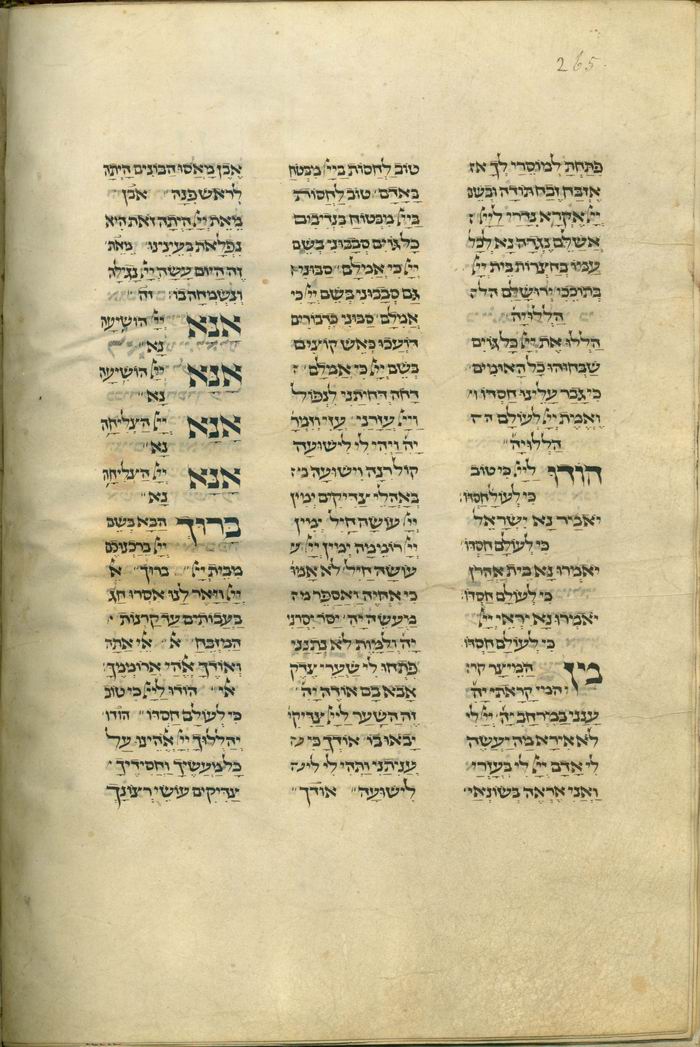 265
פתחת למוסרי לך אז
אזבח זבח תודה ובשם
ייי אקרא נדרי לייי
אשלם נגדה נא לכל
עמו בחצרות בית ייי
בתוככי ירושלם הלה
הללויה
הללו את ייי כל גוים
שבחוהו כל האומים
כי גבר עלינו חסדו וי
ואמית ייי לעולם הה
הללויה
הודו לייי כי טוב
כי לעולם חסדו
יאמר נא ישראל
כי לעולם חסדו
יאמרו נא בית אהרן
כי לעולם חסדו
יאמרו נא יראי ייי
כי לעולם חסדו
מן המיצר קרי
המי קראתי יה
ענני במרחב יה ייי לי
לא אירא מה יעשה
לי אדם ייי לי בעזרי
ואני אראה בשונאי
טוב לחסות בייי מבטח
באדם טוב לחסות
בייי מבטוח בנדיבים
כל גוים סבבוני בשם
ייי כי אמילם סבוני
גם סבבוני בשם ייי כי
אמילם סבוני כדבורים
דועכו כאש קוצים
בשם ייי כי אמילם
דחה דחיתני לנפול
וייי עזרני עזי וזמרת
יה ויהי לי לישועה
קול רנה וישועה
באהלי צדיקים ימין
ייי עושה חיל ימין
ייי רוממה ימין ייי ע
עושה חיל לא אמות
כי אחיה ואספר
מעשה יה יסר יסרני
יה ולמות לא נתנני
פתחו לי שערי צדק
אבא בם אודה יה
זה השער לייי צדיקי
יבאו בו אודך כי
עניתני ותהי לי
לישועה אודך
אבן מאסו הבונים היתה
לראש פנה אבן
מאת ייי היתה זאת היא
נפלאת בעינינו מאת
זה היום עשה ייי נגילה
ונשמחה בו זה
אנא ייי הושיעה
נא
אנא ייי הושיעה
נא
אנא ייי הצליחה
נא
אנא ייי הצליחה
נא
ברוך הבא בשם
ייי ברכנוכם
מבית ייי ברוך א
ייי ויאר לנו אסרו חג
בעבותים עד קרנות
המזבח א אי אתה
ואודך אהי ארוממך
אי הודו לייי כי טוב
כי לעולם חסדו הודו
יהללוך ייי אהינו על
כל מעשיך וחסידיך
צדיקים עושי רצונך